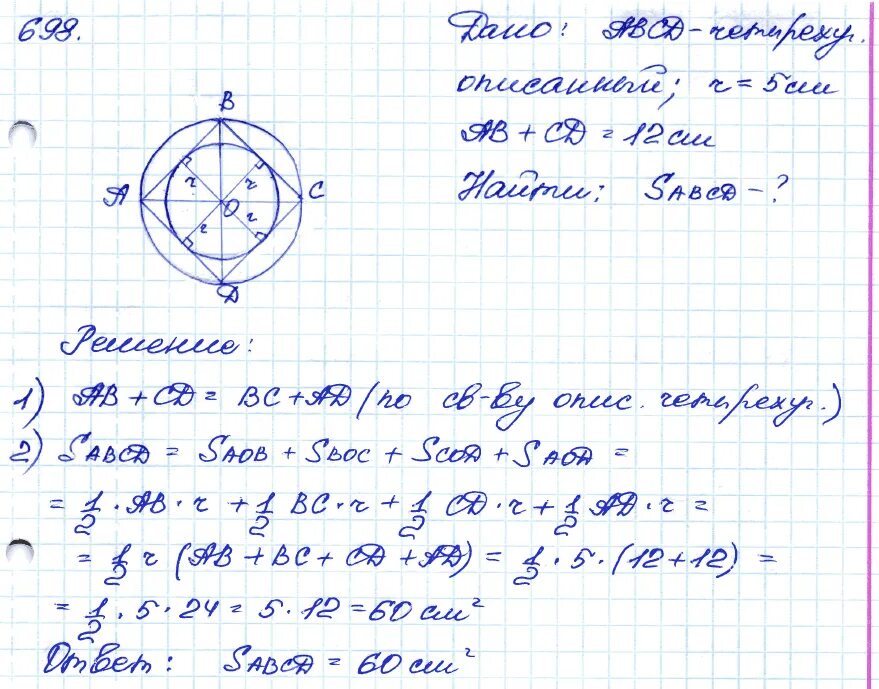 698.
Дано: ABCD - четырехуг.
описанный; r = 5 см
AB + CD = 12 см
Найти: SABCD - ?
B
A
C
O
D
r
r
r
r
Решение:
1) AB + CD = BC + AD (по св-ву опис. четырехуг.)
2) SABCD = SAOB + SBOC + SCOD + SAOD =
= 1/2 · AB · r + 1/2 BC · r + 1/2 CD · r + 1/2 AD · r =
= 1/2 r (AB + BC + CD + AD) = 1/2 · 5 · (12 + 12) =
= 1/2 · 5 · 24 = 5 · 12 = 60 см²
Ответ: SABCD = 60 см²